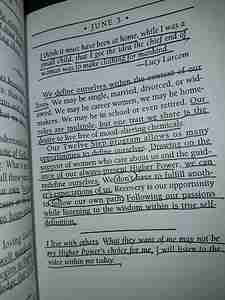 • JUNE 3 •
I think it must have been at home, while I was a
small child, that I got the idea the chief end of
woman was to make clothing for mankind.
—Lucy Larcom
We define ourselves within the context of our
lives. We may be single, married, divorced, or wid-
owed. We may be career women, we may be home-
makers. We may be in school or even retired. Our
roles are multiple, but one trait we share is the
desire to live free of mood-altering chemicals.
Our Twelve Step program gives us many
opportunities to define ourselves. Drawing on the
support of women who care about us and the guid-
ance of our always present Higher Power, we can
redefine ourselves. We don't have to fulfill anoth-
er's expectations of us. Recovery is our opportunity
to follow our own path. Following our passions
while listening to the wisdom within is true self-
definition.
I live with others. What they want of me may not be
my Higher Power's choice for me. I will listen to the
voice within me today.